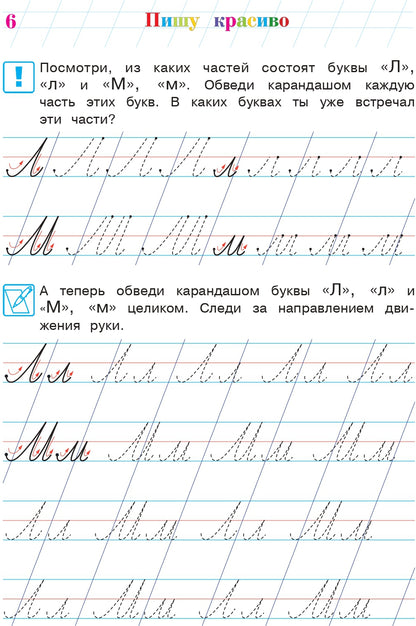 6
Пишу красиво
!
Посмотри, из каких частей состоят буквы «Л»,
«л» и «М», «м». Обведи карандашом каждую
часть этих букв. В каких буквах ты уже встречал
эти части?
Л л
М м
А теперь обведи карандашом буквы «Л», «л» и
«М», «м» целиком. Следи за направлением дви-
жения руки.
Л л Л л Л л Л л Л л
М м М м М м М м
Л л М м Л л М м
Л л М м Л л М м